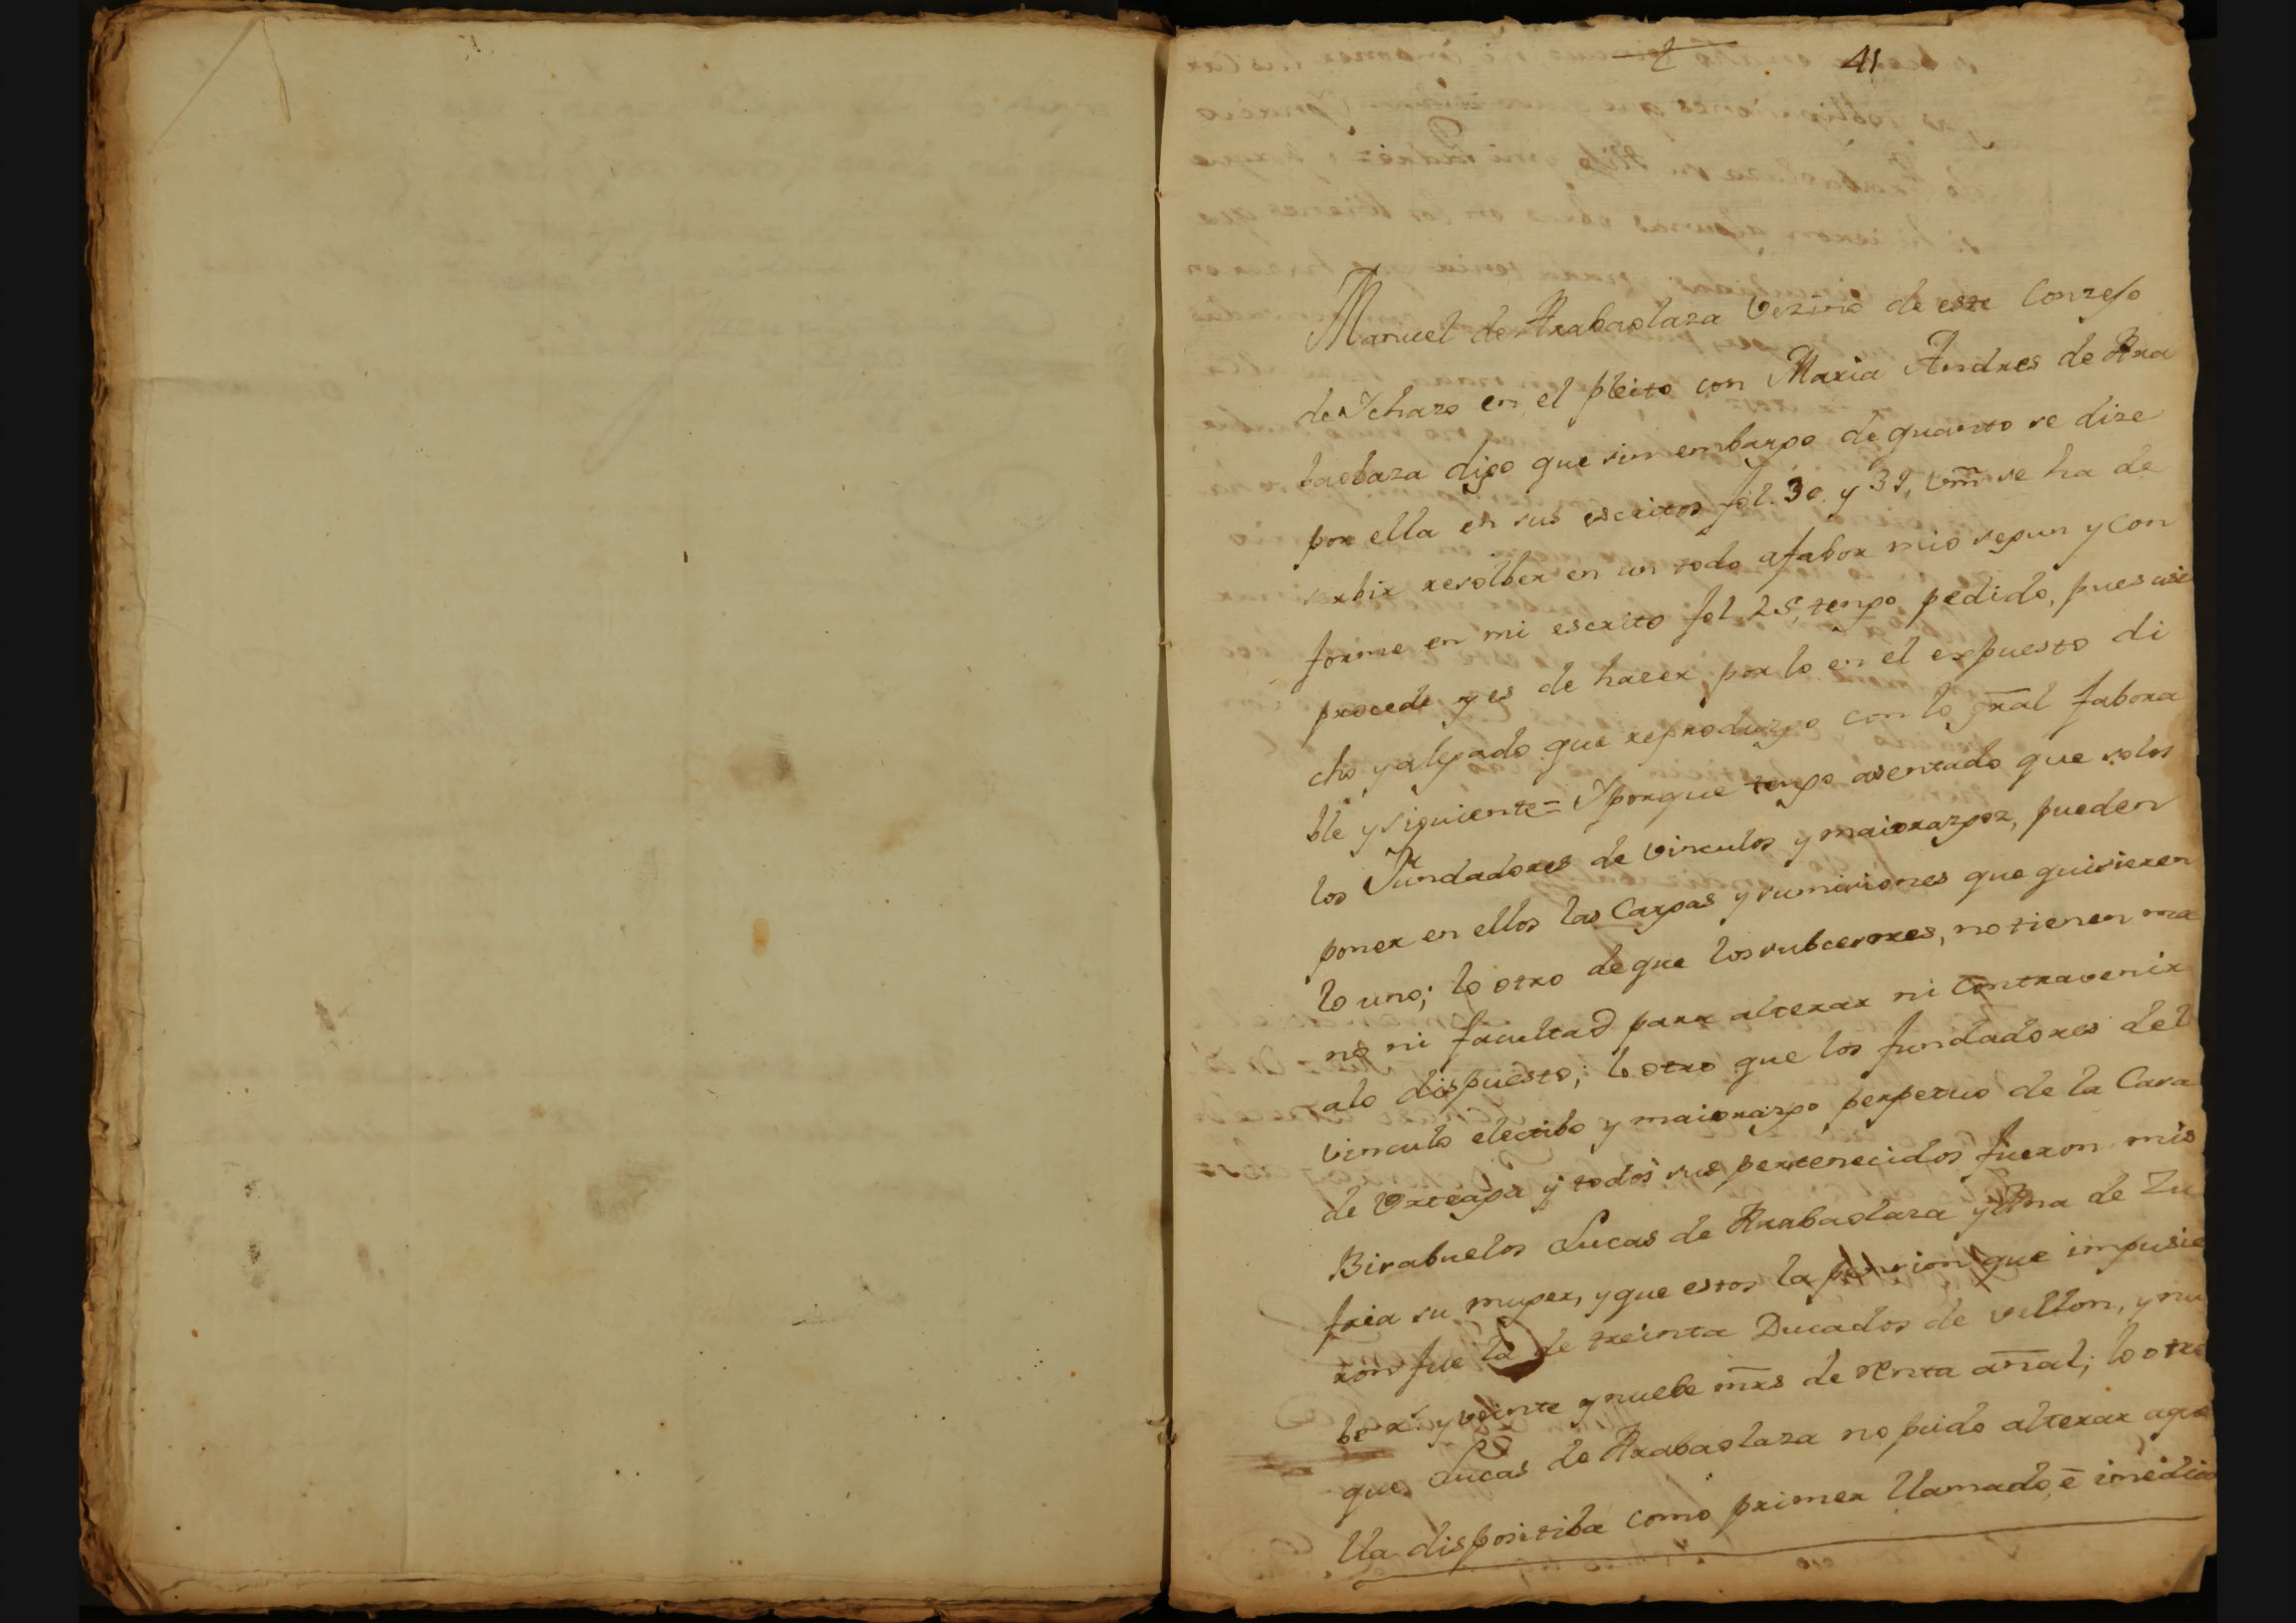 41
Manuel de Arabaolaza vezino de este Conzejo
de Ychazo en el pleito con Maria Andres de Ara
baolaza digo que sin embargo de quanto se dize
por ella en sus escritos fol. 30. y 39, Vm̃ se ha de
serbir resolber en un todo afabor mio segun y con
forme en mi escrito fol 25, tengo pedido, pues asi
procede y es de hazer por lo en el expuesto di
cho y alegado que reproduzgo con lo gr̃al fabora
ble y siguiente = Y porque tengo asentado que solos
los Fundadores de vinculos y maiorazgos, pueden
poner en ellos las Cargas y sumisiones que quisieren
lo uno; lo otro de que los subcesores, no tienen ma
no ni facultad para alterar ni contravenir
alo dispuesto; lo otro que los fundadores del
vinculo electibo y maiorazgo perpetuo de la Casa
de Orteaga y todos sus pertenecidos fueron mis
Bisabuelos Lucas de Arabaolaza y Ana de Zu
fria su muger, y que estos la pension que impusie
ron fue la de treinta Ducados de vellon, y nu
be rs. y veinte y nuebe mr̃s de renta añal; lo otro
que Lucas de Arabaolaza no pudo alterar aque
lla dispositiba como primer llamado, e imedia